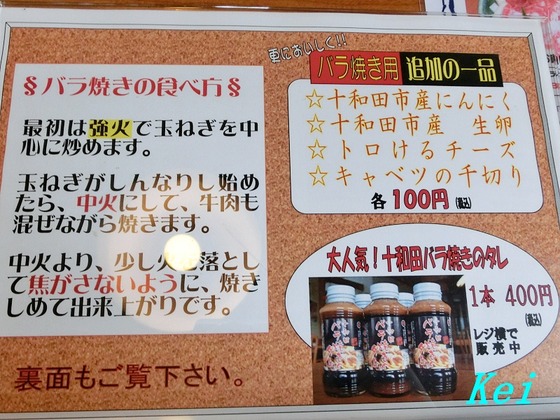 §バラ焼きの食べ方§
最初は強火で玉ねぎを中
心に炒めます。
玉ねぎがしんなりし始め
たら、中火にして、牛肉も
混ぜながら焼きます。
中火より、少し火 落とし
て焦がさないように、焼き
しめて出来上がりです。
裏面もご覧下さい。
更においしく!!
バラ焼き用 追加の一品
☆十和田市産にんにく
☆十和田市産 生卵
☆トロけるチーズ
☆キャベツの千切り
各100円(税込)
大人気!十和田バラ焼きのタレ
1本 400円
(税込)
レジ横で
販売中
バラ焼
Kei